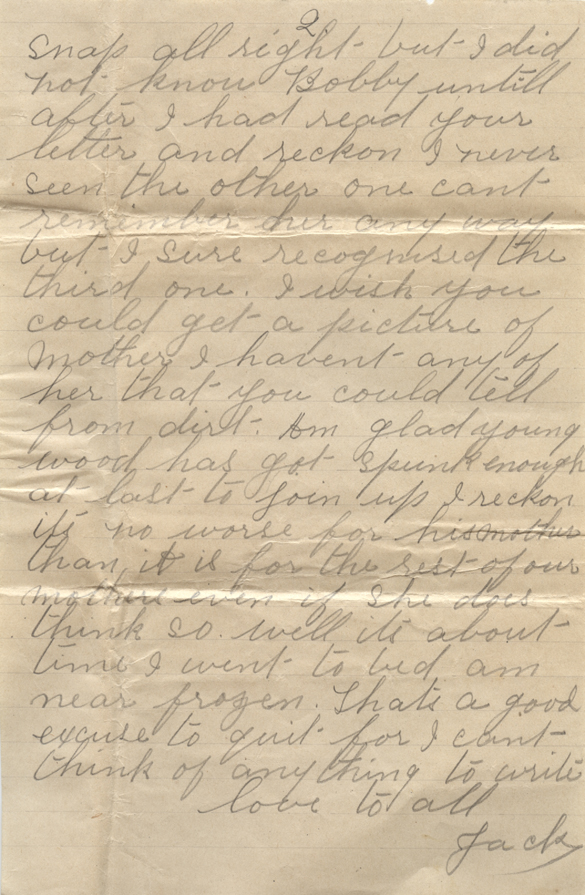 2
snap all right but I did
not know Bobby untill
after I had read your
letter and reckon I never
seen the other one cant
remimber her any way
but I sure recognised the
third one. I wish you
could get a picture of
Mother I havent any of
her that you could tell
from dirt. Am glad young
wood has got spunk enough
at last to join up I reckon
its no worse for his mother
than it is for the rest of our
mothers even if she does
think so. well its about
time I went to bed am
near frozen. Thats a good
excuse to quit for I cant
think of any thing to write
love to all
Jack